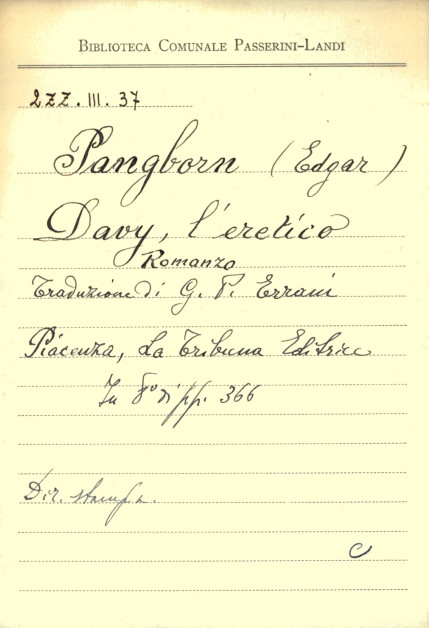 Biblioteca Comunale Passerini-Landi
2ZZ.III.37
Pangborn (Edgar)
Davy, l'eretico
Romanzo
Traduzione di G. P. Errani
Piacenza, La Tribuna Editrice
In 8° di pp. 366
Dir. stampa.
C